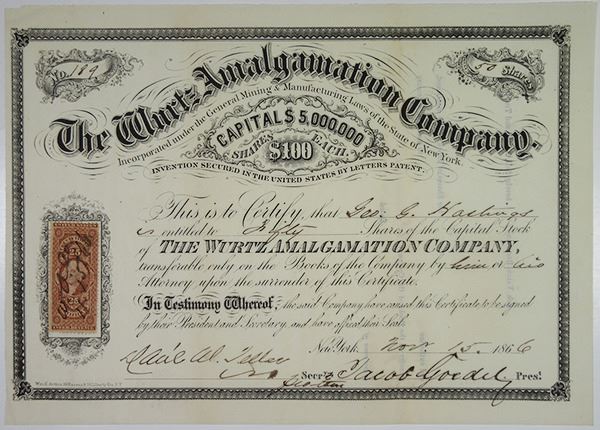 No. 189
50 Shares
The Wurtz Amalgamation Company.
Incorporated under the General Mining & Manufacturing Laws of the State of New York.
CAPITAL $5,000,000
SHARES $100 EACH.
INVENTION SECURED IN THE UNITED STATES BY LETTERS PATENT.
This is to Certify, that Geo. G. Hastings
is entitled to Fifty Shares of the Capital Stock
of THE WURTZ AMALGAMATION COMPANY,
transferable only on the Books of the Company by him or his
Attorney upon the surrender of this Certificate.
In Testimony Whereof, the said Company have caused this Certificate, to be signed
by their President and Secretary, and have affixed their Seal.
New York, Nov 15. 1866
Secry. Jacob Goedel, Pres!
25 25